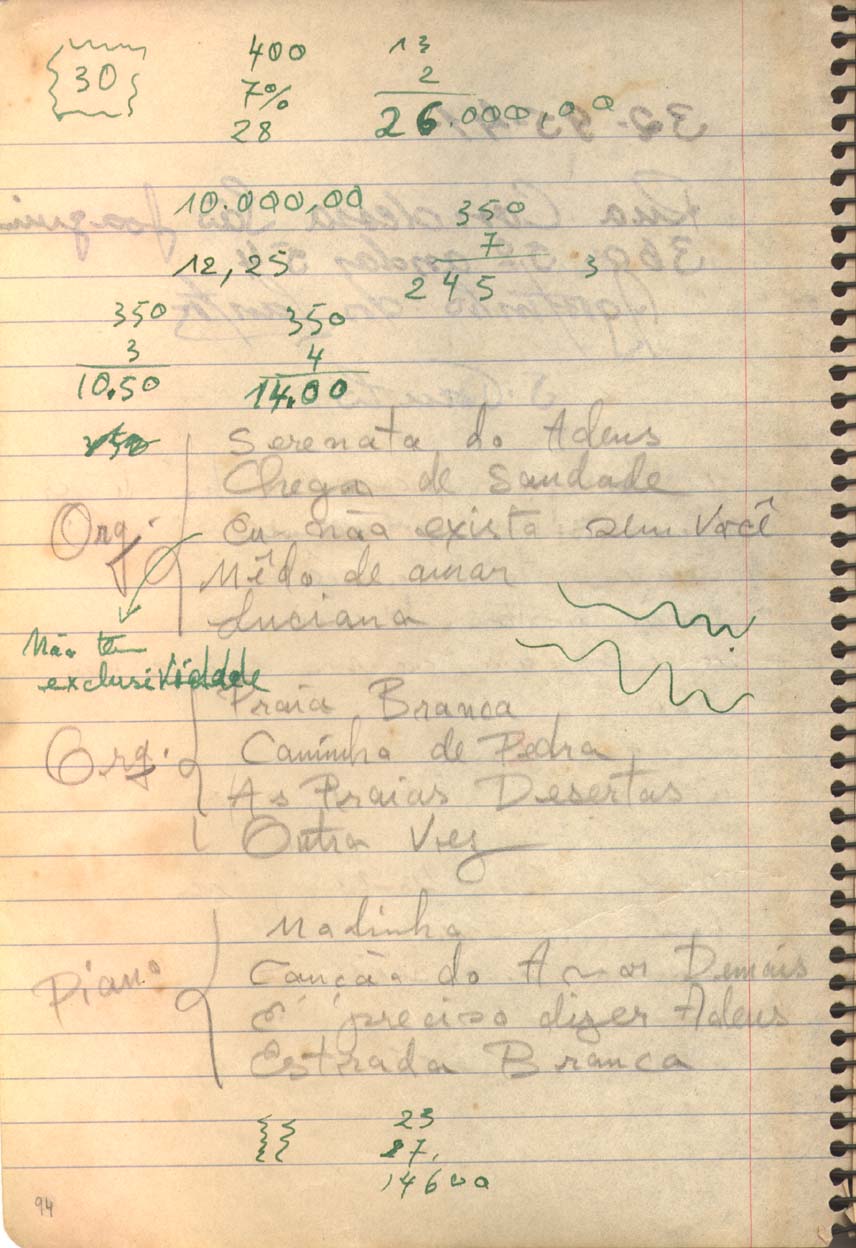 30
400
7%
28
13
2
26.000,00
10.000,00
12,25
350
7
245
3
350
3
10.50
350
4
14.00
350
Org.
Serenata do Adeus
Chega de Saudade
Eu não existo sem Você
Mêdo de amar
Luciana
Não tem
exclusividade
Org.
Praia Branca
Caminho de Pedra
As Praias Desertas
Outra Vez
Piano
Modinha
Canção do Amor Demais
É preciso dizer Adeus
Estrada Branca
23
27.
14600
94